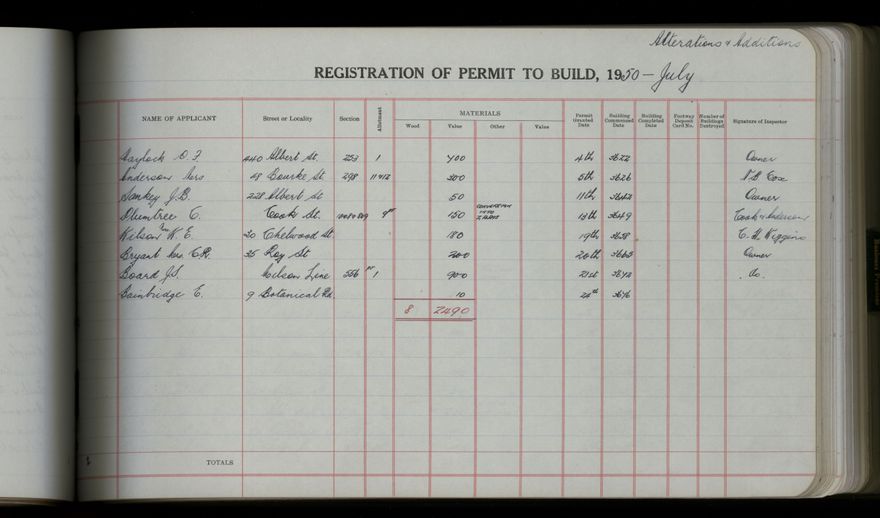 Alterations & Additions
REGISTRATION OF PERMIT TO BUILD, 1950 - July
NAME OF APPLICANT Street or Locality Section Allotment MATERIALS Permit Granted Date Building Commenced Date Building Completed Date Footway Deposit Card No. Number of Buildings Destroyed Signature of Inspector
Wood Value Other Value
Haylock O.F. 440 Albert St. 223 1 400 4th 3622 Owner
Anderson Mrs 48 Bourke St. 298 11 & 12 300 5th 3626 N.B. Cox
Sankey J.B. 228 Albert St 50 11th Owner
Plumtree C. Cook St. 150 CONVERSION INTO 2 FLATS 13th 3649 Cook & Anderson
Wilson W.E. 20 Chelwood St. 180 19th 3658 C.H. Wiggins
Bryant Mrs C.R. 35 Roy St 200 20th 3665 Owner
Board J.S. Wilson Line 556 Pt 1 900 21st 3672 Do.
Bainbridge C. 9 Botanical Rd. 10 3676
8 2490
TOTALS